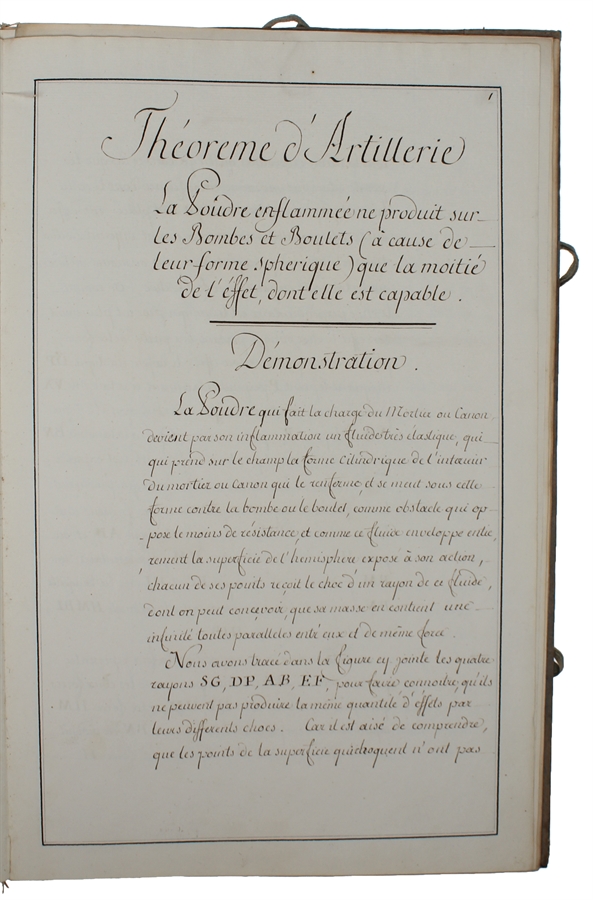 1
Théoreme d'Artillerie
La Poudre enflammée ne produit sur
les Bombes et Boulets (à cause de
leur forme spherique) que la moitié
de l'éffet, dont elle est capable.
Démonstration.
La Poudre qui fait la charge du Mortier ou Canon
devient par son inflammation un fluide très élastique, qui
qui prend sur le champ la forme cilindrique de l'interieur
du mortier ou canon qui le renferme, et se meut sous cette
forme contre la bombe ou le boulet, comme obstacle qui op-
-pose le moins de résistance, et comme ce fluide enveloppe entie,
,rement la superficie de l'hemisphere exposé à son action,
chacun de ses points reçoit le choc d'un rayon de ce fluide,
dont on peut concevoir, que sa masse en contient une
infinité toutes paralleles entr'eux et de même force.
Nous avons tracé dans la figure cy jointe les quatre
rayons SG, DP, AB, EF, pour faire connoitre, qu'ils
ne peuvent pas produire la même quantité d'éffets par
leurs differents chocs. Car il est aisé de comprendre,
que les points de la superficie qu'ils choquent n'ont pas